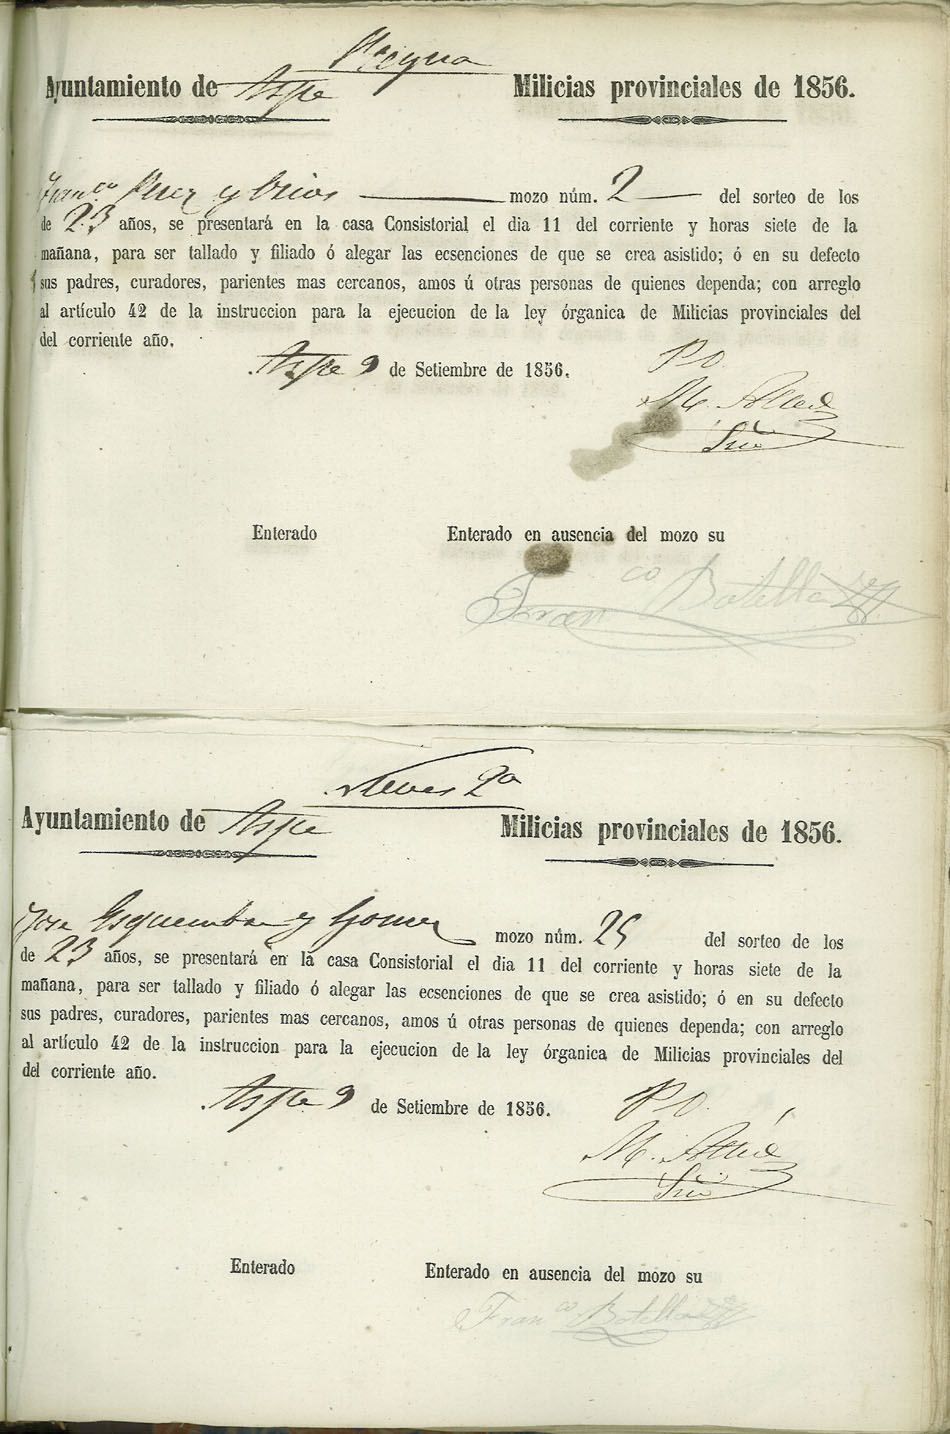 Ayuntamiento de Aspe Milicias provinciales de 1856.
Fran.co Perez y mozo núm. 2 del sorteo de los
de 23 años, se presentará en la casa Consistorial el dia 11 del corriente y horas siete de la
mañana, para ser tallado y filiado ó alegar las ecsenciones de que se crea asistido; ó en su defecto
sus padres, curadores, parientes mas cercanos, amos ú otras personas de quienes dependa; con arreglo
al artículo 42 de la instruccion para la ejecucion de la ley órganica de Milicias provinciales del
del corriente año.
Aspe 9 de Setiembre de 1856.
P.O.
M.
Srio
Enterado Enterado en ausencia del mozo su
Franco Botella
Nieves 2a
Ayuntamiento de Aspe Milicias provinciales de 1856.
Jose Esquembre y Gomez mozo núm. 25 del sorteo de los
de 23 años, se presentará en la casa Consistorial el dia 11 del corriente y horas siete de la
mañana, para ser tallado y filiado ó alegar las ecsenciones de que se crea asistido; ó en su defecto
sus padres, curadores, parientes mas cercanos, amos ú otras personas de quienes dependa; con arreglo
al artículo 42 de la instruccion para la ejecucion de la ley órganica de Milicias provinciales del
del corriente año.
Aspe 9 de Setiembre de 1856.
P.O.
M.
Srio
Enterado Enterado en ausencia del mozo su
Franco Botella